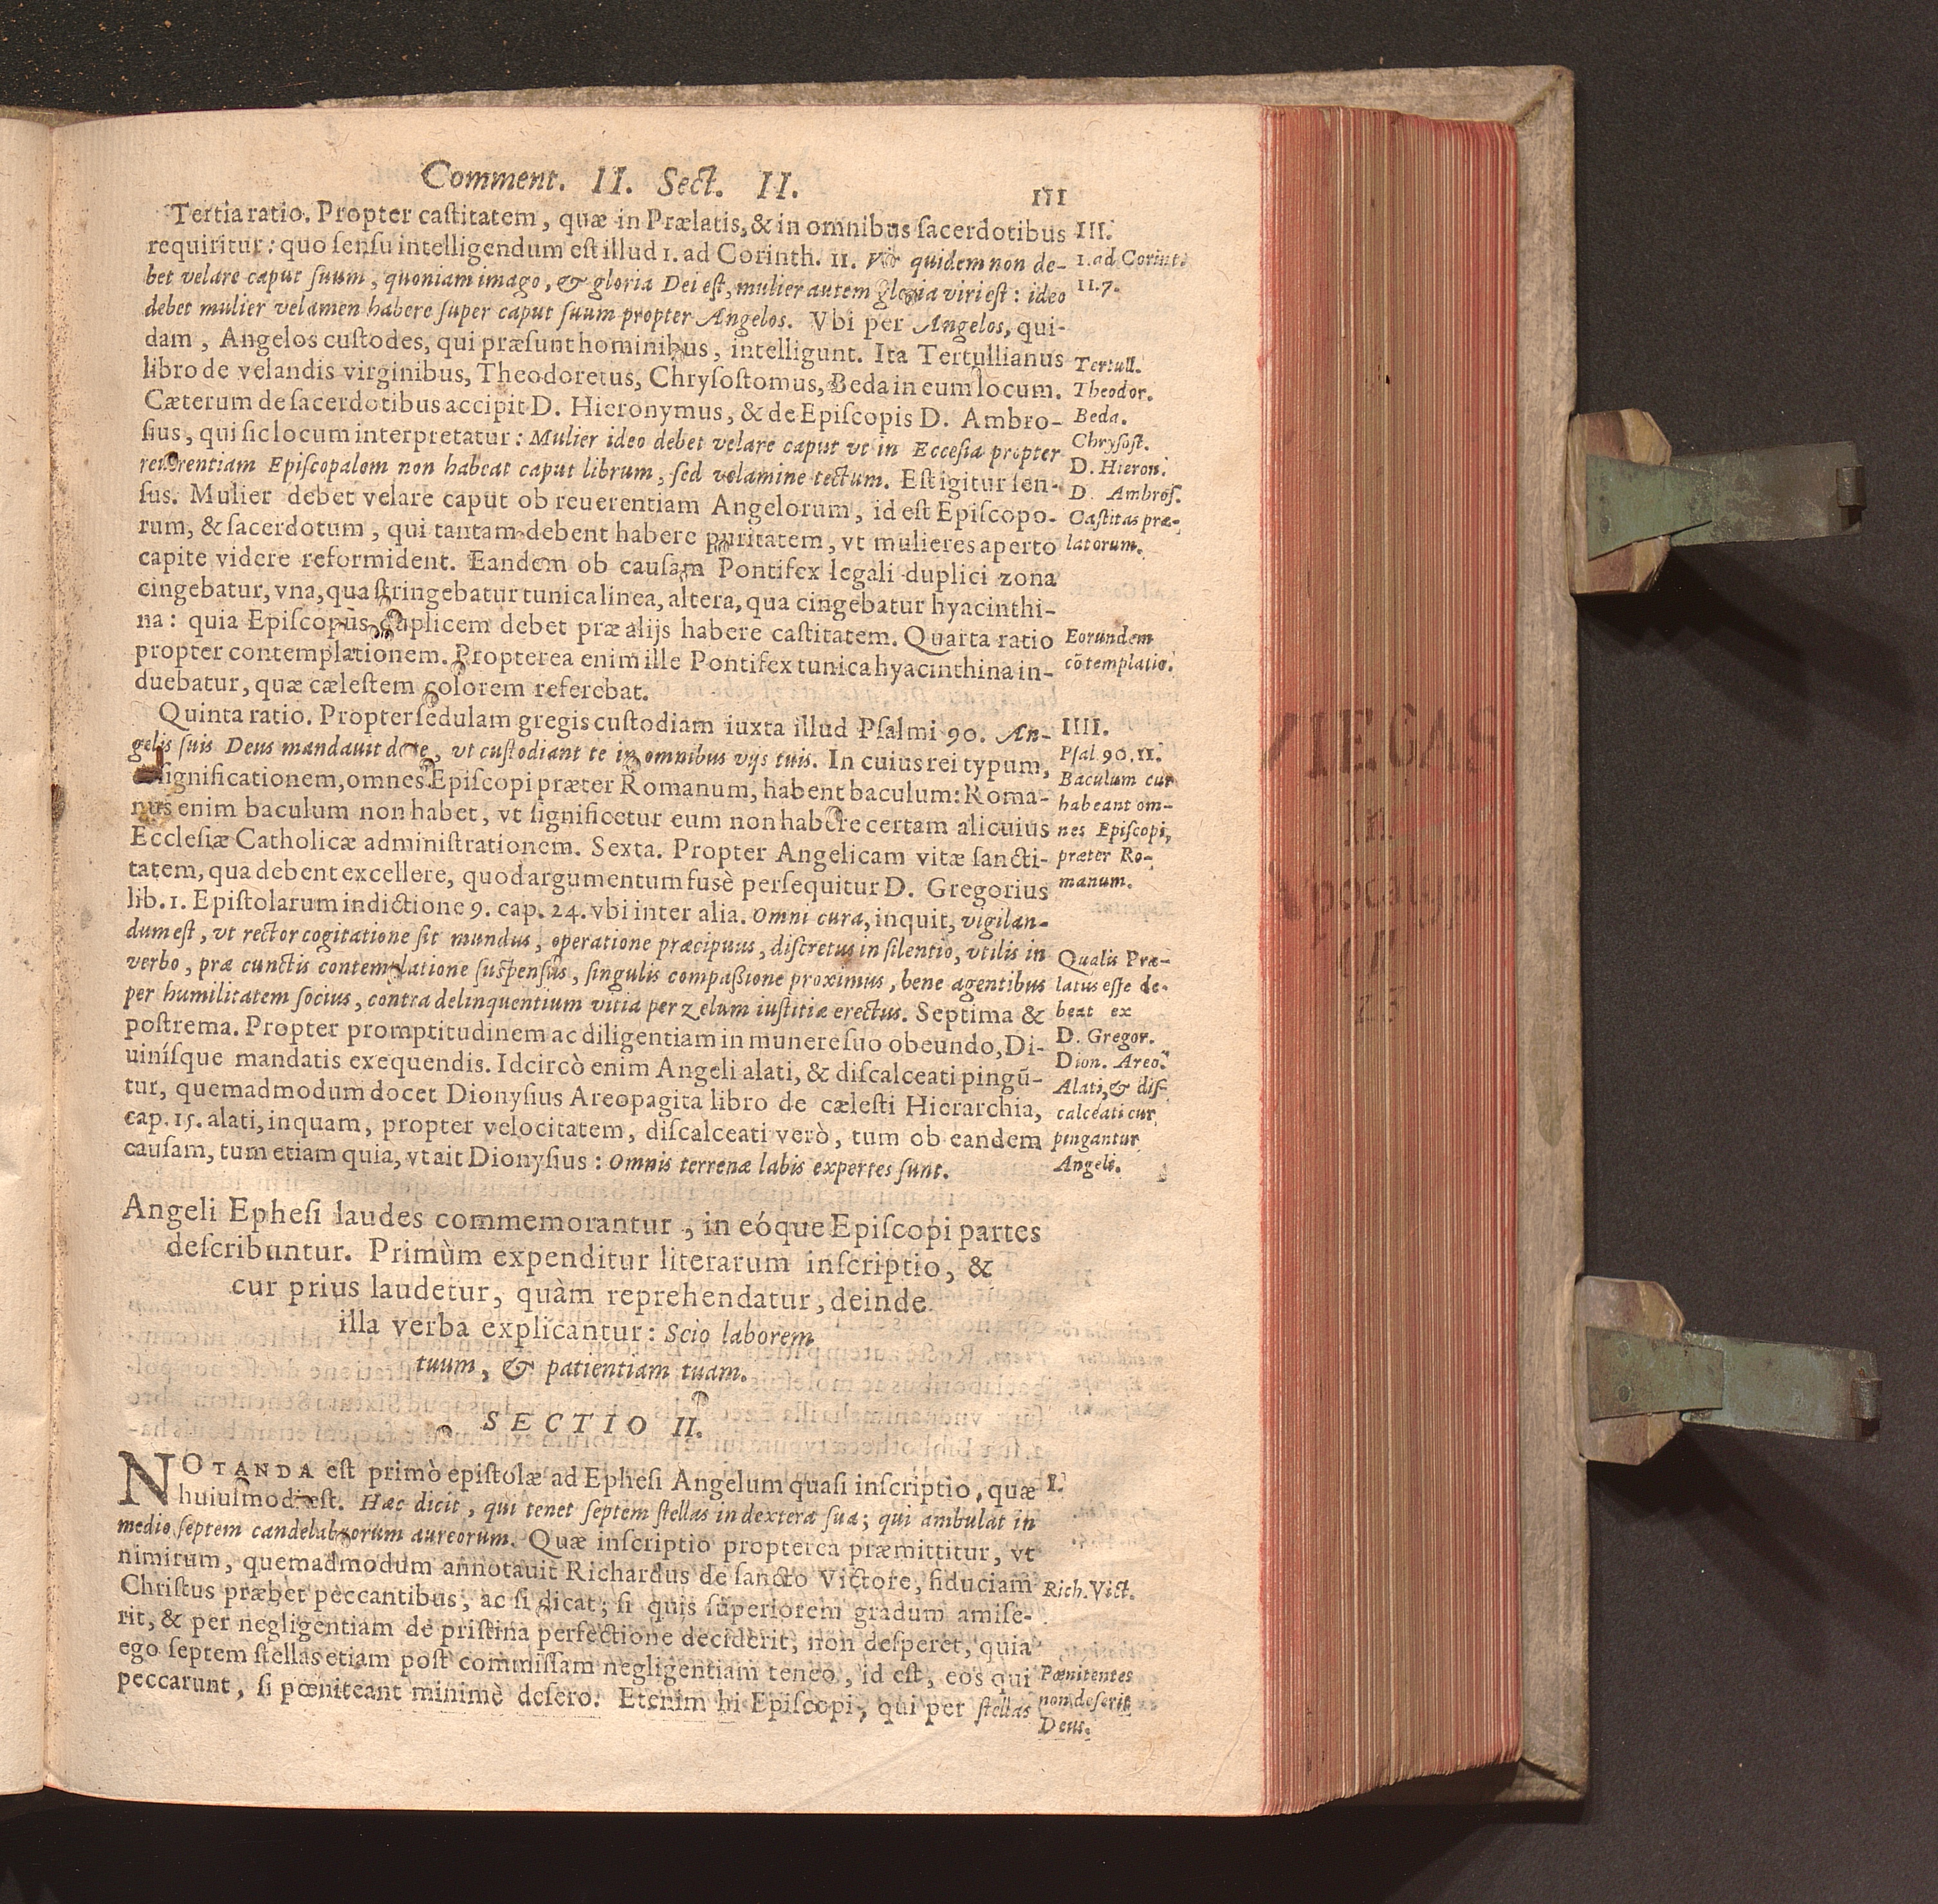 Comment. II. Sect. II.
111
Tertia ratio. Propter castitatem, quæ in Prælatis, & in omnibus sacerdotibus
requiritur: quo sensu intelligendum est illud 1. ad Corinth. 11. Vir quidem non de-
bet velare caput suum, quoniam imago, & gloria Dei est, mulier autem gloria viri est: ideo
debet mulier velamen habere super caput suum propter Angelos. Vbi per Angelos, qui-
dam, Angelos custodes, qui præsunt hominibus, intelligunt. Ita Tertullianus
libro de velandis virginibus, Theodoretus, Chrysostomus, Beda in eum locum.
Cæterum de sacerdotibus accipit D. Hieronymus, & de Episcopis D. Ambro-
sius, qui sic locum interpretatur: Mulier ideo debet velare caput vt in Eccesia propter
reuerentiam Episcopalem non habeat caput librum, sed velamine tectum. Est igitur sen-
sus. Mulier debet velare caput ob reuerentiam Angelorum, id est Episcopo-
rum, & sacerdotum, qui tantam debent habere puritatem, vt mulieres aperto
capite videre reformident. Eandem ob causam Pontifex legali duplici zona
cingebatur, vna, qua stringebatur tunica linea, altera, qua cingebatur hyacinthi-
na: quia Episcopus duplicem debet præ alijs habere castitatem. Quarta ratio
propter contemplationem. Propterea enim ille Pontifex tunica hyacinthina in-
duebatur, quæ cælestem colorem referebat.
Quinta ratio. Propter sedulam gregis custodiam iuxta illud Psalmi 90. An-
gelis suis Deus mandauit de te, vt custodiant te in omnibus vijs tuis. In cuius rei typum,
significationem, omnes Episcopi præter Romanum, habent baculum: Roma-
nus enim baculum non habet, vt significetur eum non habere certam alicuius
Ecclesiæ Catholicæ administrationem. Sexta. Propter Angelicam vitæ sancti-
tatem, qua debent excellere, quod argumentum fusè persequitur D. Gregorius
lib. 1. Epistolarum indictione 9. cap. 24. vbi inter alia. Omni cura, inquit, vigilan-
dum est, vt rector cogitatione sit mundus, operatione præcipuus, discretus in silentio, vtilis in
verbo, præ cunctis contemplatione suspensus, singulis compassione proximus, bene agentibus
per humilitatem socius, contra delinquentium vitia per zelum iustitiæ erectus. Septima &
postrema. Propter promptitudinem ac diligentiam in munere suo obeundo, Di-
uinísque mandatis exequendis. Idcircò enim Angeli alati, & discalceati pingū-
tur, quemadmodum docet Dionysius Areopagita libro de cælesti Hierarchia,
cap. 15. alati, inquam, propter velocitatem, discalceati verò, tum ob eandem
causam, tum etiam quia, vt ait Dionysius: Omnis terrenæ labis expertes sunt.
Angeli Ephesi laudes commemorantur, in eóque Episcopi partes
describuntur. Primùm expenditur literarum inscriptio, &
cur prius laudetur, quàm reprehendatur, deinde
illa verba explicantur: Scio laborem
tuum, & patientiam tuam.
SECTIO II.
NOTANDA est primò epistolæ ad Ephesi Angelum quasi inscriptio, quæ
huiusmodi est. Hæc dicit, qui tenet septem stellas in dextera sua; qui ambulat in
medio septem candelabrorum aureorum. Quæ inscriptio propterea præmittitur, vt
nimirum, quemadmodum annotauit Richardus de sancto Victore, fiduciam
Christus præbet peccantibus, ac si dicat; si quis superiorem gradum amise-
rit, & per negligentiam de pristina perfectione deciderit, non desperet, quia
ego septem stellas etiam post commissam negligentiam teneo, id est, eos qui
peccarunt, si pœniteant minimè desero. Etenim hi Episcopi, qui per stellas
III.
1. ad Corint.
11.7.
Tertull.
Theodor.
Beda.
Chrysost.
D. Hieron.
D. Ambros.
Castitas præ-
latorum.
Eorundem
cōtemplatio.
IIII.
Psal 90.11.
Baculum cur
habeant om-
nes Episcopi,
præter Ro-
manum.
Qualis Præ-
latus esse de-
beat ex
D. Gregor.
Dion. Areo.
Alati, & dis-
calceati cur
pingantur
Angeli.
I.
Rich. Vict.
Pænitentes
non deserit
Deus.
VIEGAS
In
Apocalyp